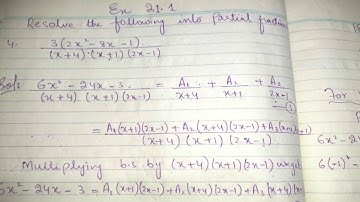 Ex 21.1
Resolve the following into Partial fraction
4. 3(2x² - 8x - 1) / (x+4)(x+1)(2x-1)
Sol: 6x² - 24x - 3 / (x+4)(x+1)(2x-1) = A₁ / x+4 + A₂ / x+1 + A₃ / 2x-1
= A₁(x+1)(2x-1) + A₂(x+4)(2x-1) + A₃(x+4)(x+1) / (x+4)(x+1)(2x-1)
Multiplying b.s by (x+4)(x+1)(2x-1) we get
6x² - 24x - 3 = A₁(x+1)(2x-1) + A₂(x+4)(2x-1) + A₃(x+4)(x+
For
Put
6(-1)² -